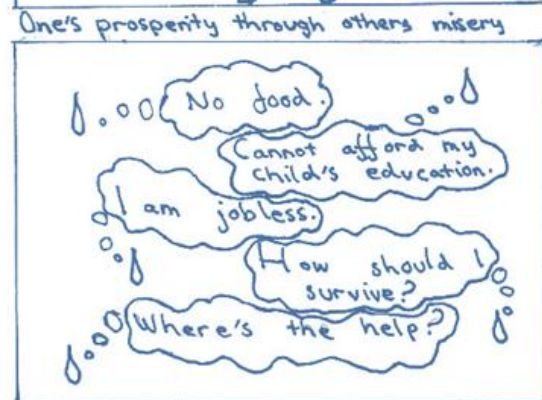 One's prosperity through others misery
No food.
Cannot afford my
child's education.
I am jobless.
How should I
survive?
Where's the help?